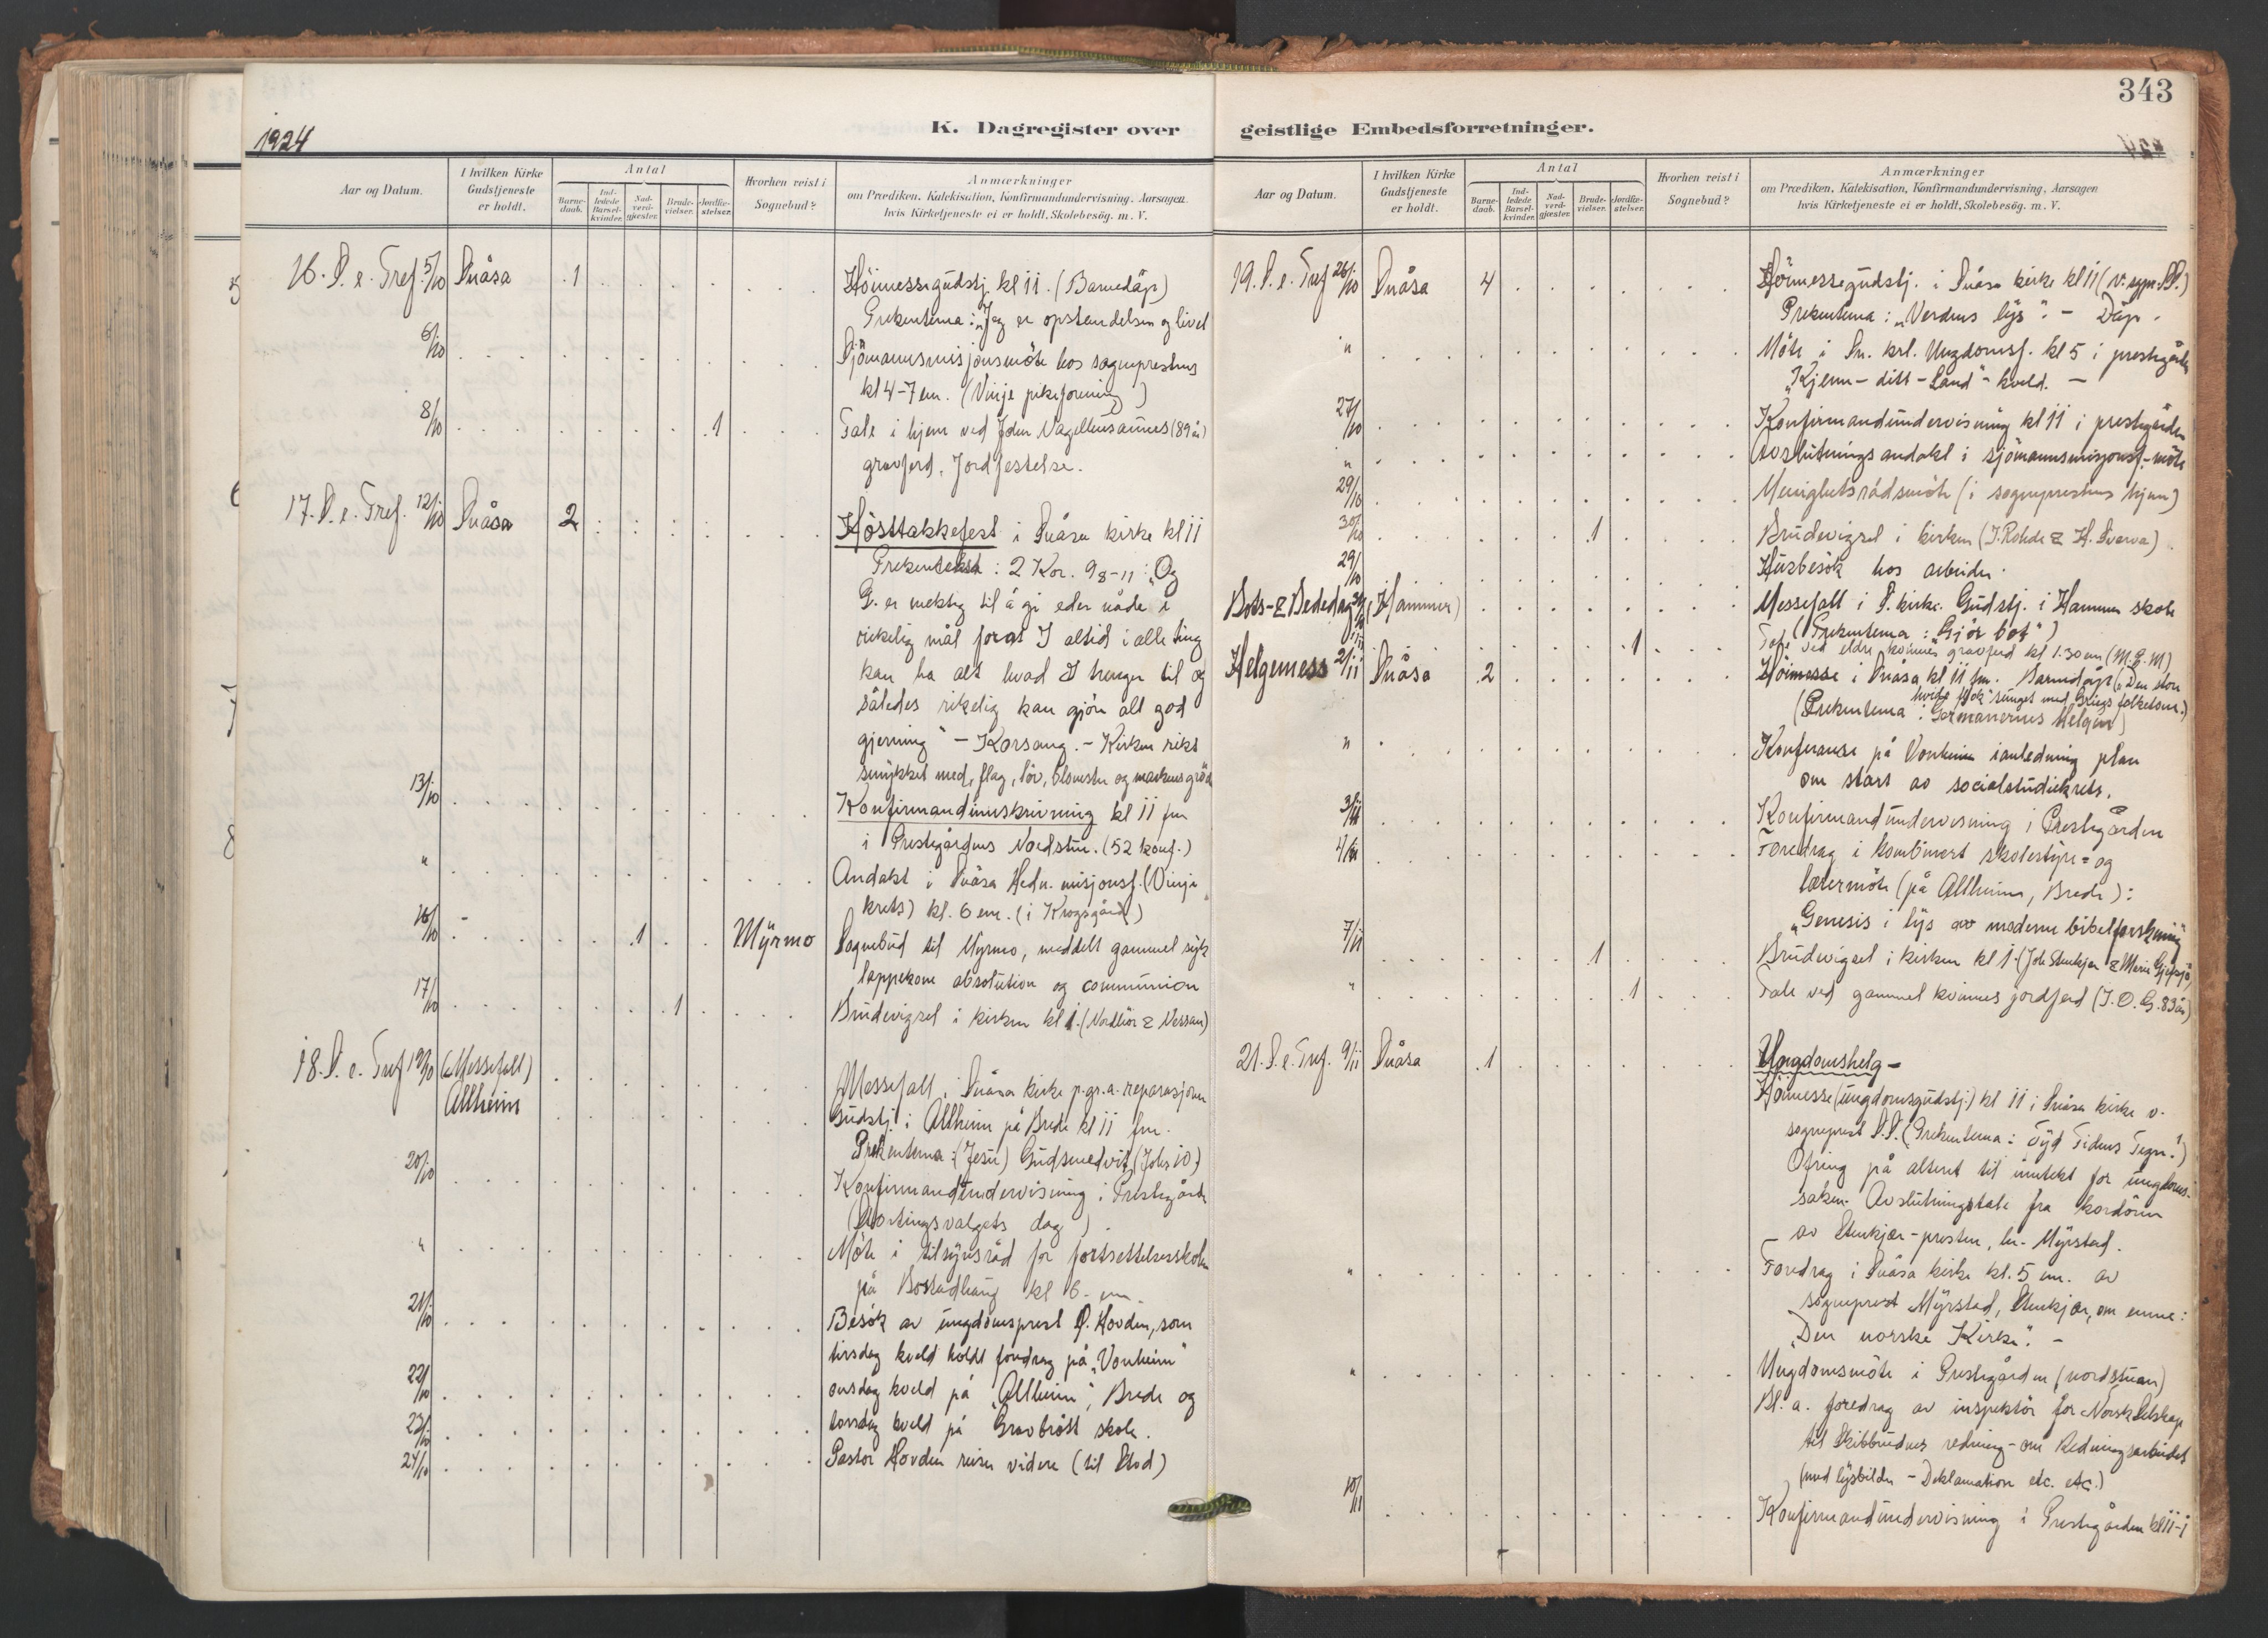 1924
K. Dagregister over
Aar og Datum.
I hvilken Kirke Gudstjeneste er holdt.
Antal
Barne-daab.
Ind-ledede Barsel-kvinder.
Nad-verd-gjæster.
Brude-vielser.
Jordfæ-stelser.
Hvorhen reist i Sognebud?
Anmærkninger
om Prædiken, Katekisation, Konfirmandundervisning, Aarsagen
hvis Kirketjeneste ei er holdt, Skolebesög. m. V.
16. S. e. Tref. 5/10 Snåsa 1 Höimessegudstj. kl 11. (Barnedåp)
Prekentema: "Jeg er opstandelsen og livet
6/10 Sjömannsmisjonsmöte hos sogneprestens
kl 4-7 em. (Vinje pikeforening)
8/10 1 Tale i hjem ved (89 år)
gravferd. Jordfestelse.
17. S. e. Tref. 12/10 Snåsa 2 Hösttakkefest i Snåsa kirke kl 11
Prekentekst: 2 Kor. 9 8-11: "Og
G. er mektig til å gi eder nåde i
rikelig mål forat I altid i alle ting
kan ha alt hvad I trenger til og
således rikelig kan gjöre all god
gjerning" - Korsang. - Kirken rikt
smykket med flag, löv, blomster og markens gröde
13/10 Konfirmandinnskrivning kl 11 fm
i Prestegårdens Nordstue. (52 konf.)
" Andakt i Snåsa Hedn. misjonsf. (Vinje
krets) kl. 6 em. (i Krogsgård)
16/10 - 1 Myrmo Sognebud til Myrmo, meddelt gammel syk
lappekone absolution og communion
17/10 1 Brudevigsel i kirken kl 1.
18. S. e. Tref 19/10 (Messefall) Messefall i Snåsa kirke p.gr.a. reparasjoner
Allheim Gudstj. i Allheim på Brede kl 11 fm.
Prekentema: (Jesu) Gudsmedvit (Joh 10)
20/10 Konfirmandundervisning i Prestegården
(Stortingsvalgets dag).
" Möte i tilsynsråd for fortsettelsesskolen
på kl 6 em.
21/10 Besök av ungdomsprest P. Hovden, som
tirsdag kveld holdt foredrag på "Vonheim"
22/10 onsdag kveld på "Allheim", Brede og
23/10 torsdag kveld på Gravbrött skole.
24/10 Pastor Hovden reiser videre (til Stod)
343
geistlige Embedsforretninger.
Aar og Datum.
I hvilken Kirke Gudstjeneste er holdt.
Antal
Barne-daab.
Ind-ledede Barsel-kvinder.
Nad-verd-gjæster.
Brude-vielser.
Jordfæ-stelser.
Hvorhen reist i Sognebud?
Anmærkninger
om Prædiken, Katekisation, Konfirmandundervisning, Aarsagen
hvis Kirketjeneste ei er holdt, Skolebesög. m. V.
19. S. e. Tref 26/10 Snåsa 4 Höimessegudstj. i Snåsa kirke kl 11
Prekentema: "Verdens lys". - Dåp.
" Möte i Sn. krl. Ungdomsf. kl 5 i prestegården
"Kjenn-ditt-Land"-kveld. -
27/10 Konfirmandundervisning kl 11 i prestegården
" Avslutningsandakt i sjömannsmisjonsf.-möte
29/10 Menighetsrådsmöte (i sogneprestens hjem)
30/10 1 Brudevigsel i kirken (J. Rohde & H. Sverva)
29/10 Husbesök hos arbeider.
Bots- & Bededag (Hammer) Messefall i S. kirke. Gudstj. i Hammer skole
(Prekentema: "Gjör bot")
1 Tale ved eldre kvinnes gravferd kl 1.30 em (M. G. M)
Helgemess 2/11 Snåsa 2 Höimesse i Snåsa kl 11 fm. Barnedåp ("Den store
hvide flok" sunget med Griegs folketone.)
(Prekentema: Germanernes Helgen)
" Konferanse på Vonheim i anledning plan
om start av socialstudiekrets.
3/11 Konfirmandundervisning i Prestegården
4/11 Foredrag i kombinert skolestyre- og
lærermöte (på Allheim, Brede):
"Genesis i lys av moderne bibelforskning"
7/11 1 Brudevigsel i kirken kl 1.
" 1 Tale ved gammel kvinnes jordferd (J. O. G. 83 år)
21. S. e. Tref. 9/11 Snåsa 1 Ungdomshelg -
Höimesse (ungdomsgudstj.) kl 11 i Snåsa kirke v.
sogneprest S.S. (Prekentema: Tyd Tidens Tegn!)
Ofring på alteret til inntekt for ungdoms-
saken. Avslutningstale fra kordören
av Stenkjær-presten, hr. Myrstad.
" Foredrag i Snåsa kirke kl. 5 em. av
sogneprest Myrstad, Stenkjær, om emne:
"Den norske Kirke". -
" Ungdomsmöte i Prestegården (nordstuen)
Bl. a. foredrag av inspektör for Norsk Selskap
til Skibbrudnes redning - om Redningsarbeidet
(med lysbilder - Deklamation etc. etc.)
10/11 Konfirmandundervisning i Prestegården kl 11-1